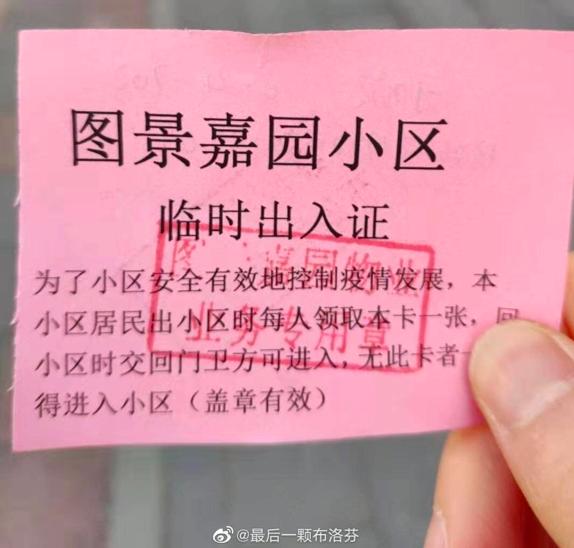 图景嘉园小区
临时出入证
为了小区安全有效地控制疫情发展，本
小区居民出小区时每人领取本卡一张，回
小区时交回门卫方可进入，无此卡者一
得进入小区（盖章有效）
嘉园物业
业务专用章
@最后一颗布洛芬